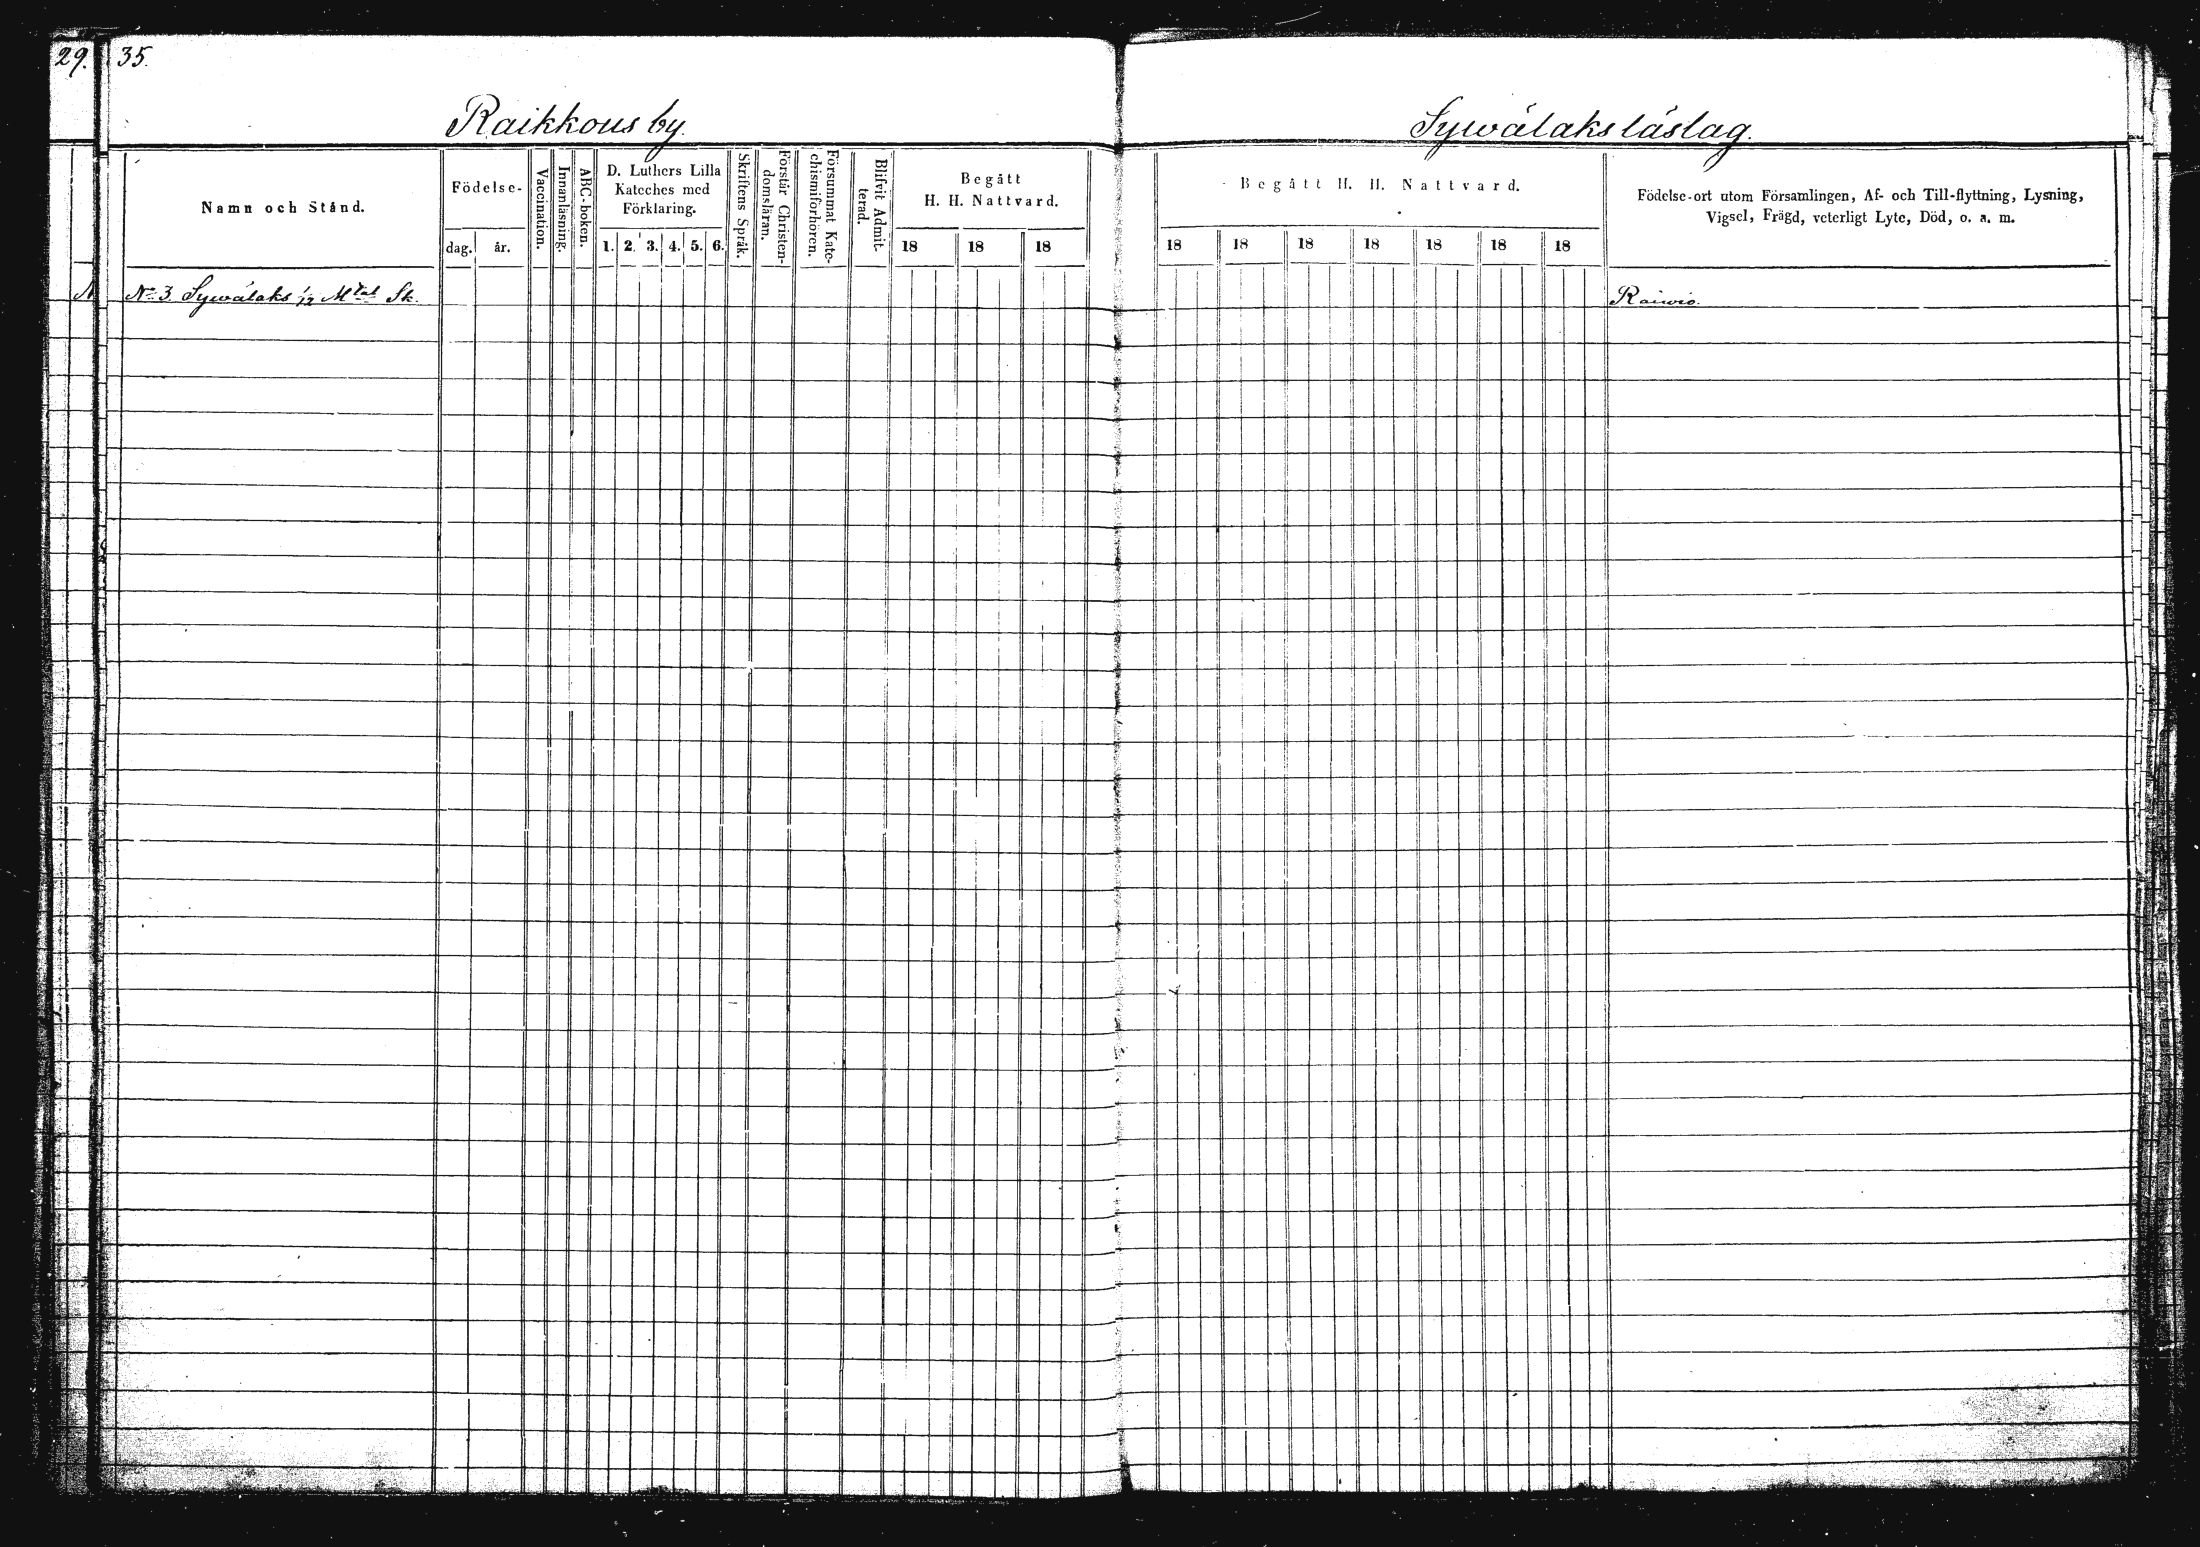 29.
35.
Raikkous by.
Sywälaks läslag.
Namn och Stånd.
Födelse-
dag.
år.
Vaccination.
Innanläsning.
ABC-boken.
D. Luthers Lilla
Kateches med
Förklaring.
1. 2. 3. 4. 5. 6.
Skriftens Språk.
Förstår Christen-
domsläran.
Försummat Kate-
chismiförhören.
Blifvit Admit-
terad.
Begått
H. H. Nattvard.
18 18 18
Begått H. H. Nattvard.
18 18 18 18 18 18 18
Födelse-ort utom Församlingen, Af- och Till-flyttning, Lysning,
Vigsel, Frägd, veterligt Lyte, Död, o. a. m.
N
No 3 Sywälaks 1/12 Mtal Sk.
Raiwio.